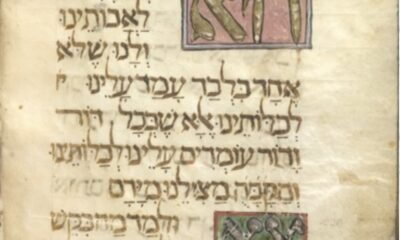 לאבותינו
ולנו שלא
אחד בלבד עמד עלינו
לכלותינו אלא שבכל דור
ודור עומדים עלינו לכלותינו
והקבה מצילנו מידם
ולמד מה בקש